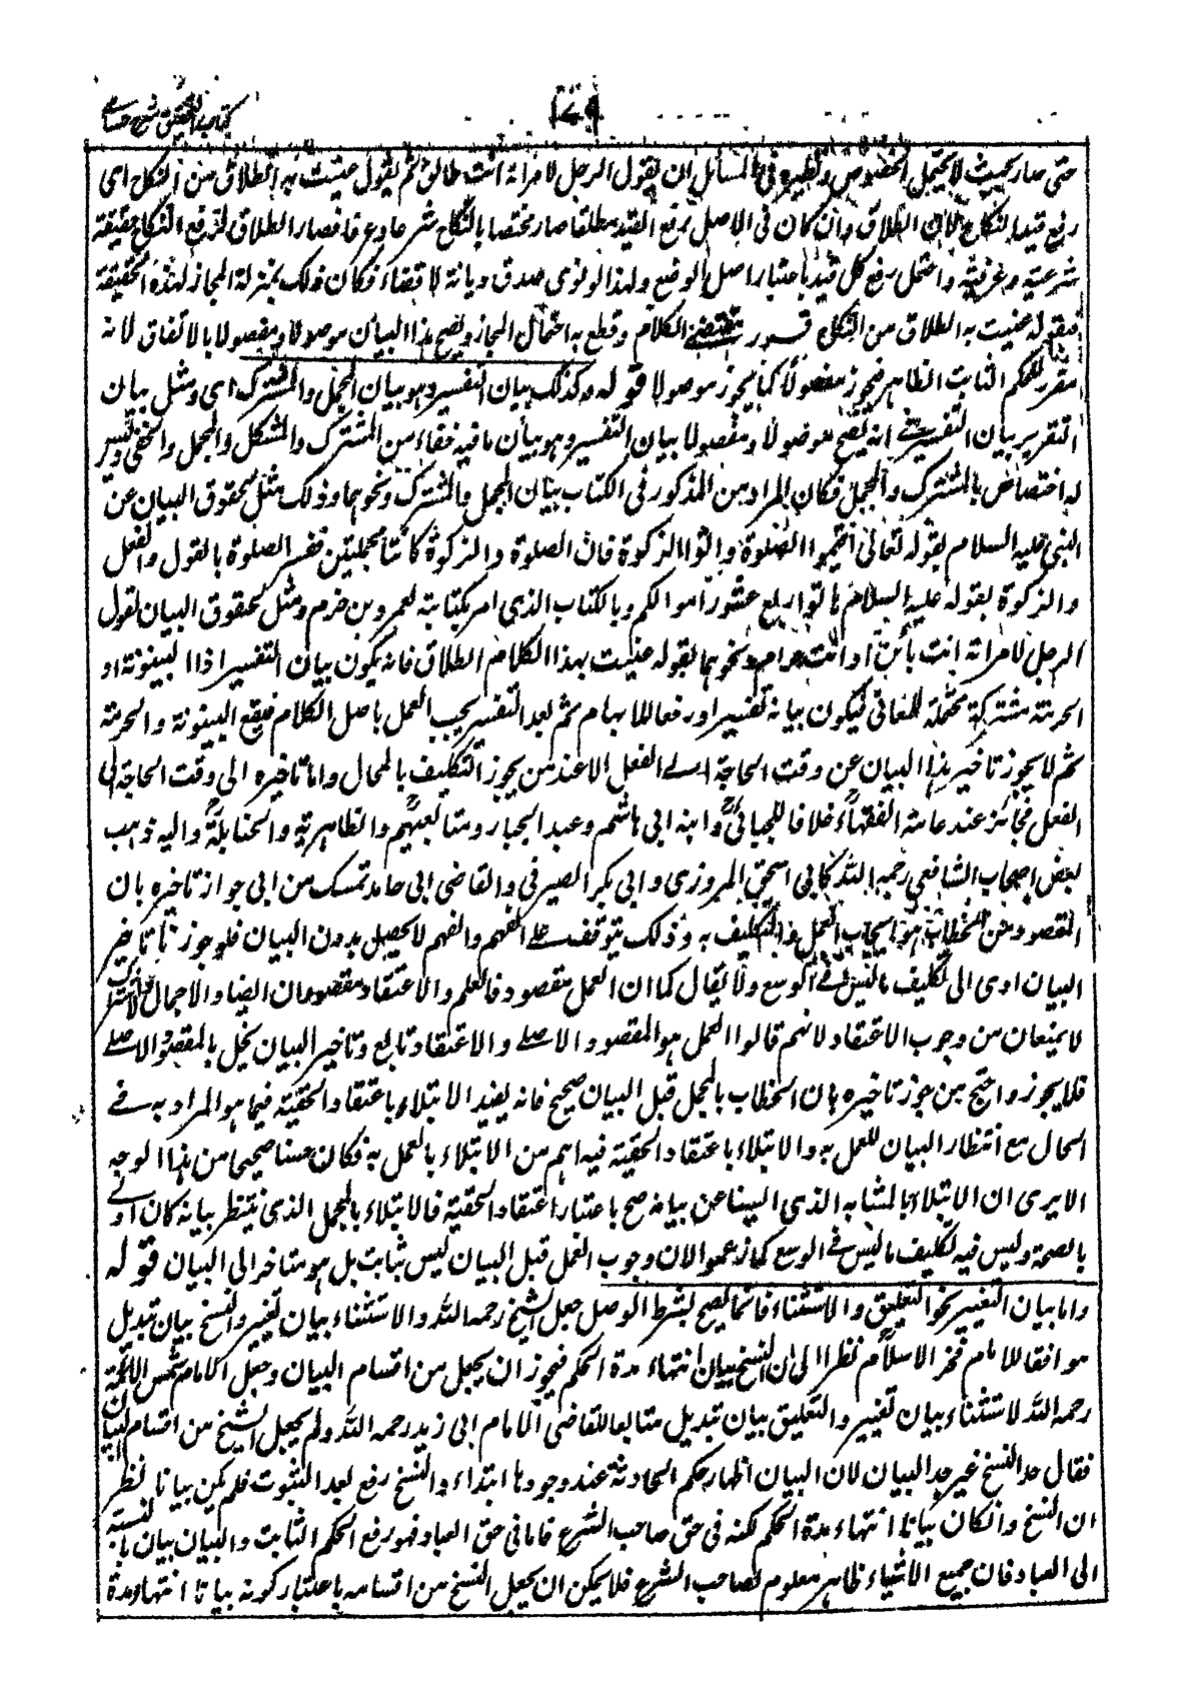 كتاب التحقيق شرح حسامي
١٧٩
حتى صار بحيث لا يحتمل الخصوص ونظيره في المسائل ان يقول الرجل لامراته انت طالق ثم يقول عنيت به الطلاق من النكاح اى
رفع قيد النكاح لان الطلاق وان كان في الاصل لرفع القيد مطلقا صار مختصا بالنكاح شرعا وعرفا فصار الطلاق لرفع النكاح حقيقة
شرعية وعرفية واحتمل رفع كل قيد باعتبار اصل الوضع ولهذا لو نوى صدق ديانة لا قضاء فكان ذلك بمنزلة المجاز لهذه الحقيقة
فبقوله عنيت به الطلاق من النكاح قرر مقتضى الكلام وقطع به احتمال المجاز ويصح هذا البيان موصولا ومفصولا بالاتفاق لانه
مقرر للحكم الثابت الظاهر فيجوز مفصولا كما يجوز موصولا قوله وكذلك بيان التفسير وهو بيان المجمل والمشترك اى ومثل بيان
التقرير بيان التفسير في انه يصح موصولا ومفصولا بيان التفسير وهو بيان ما فيه خفاء من المشترك والمشكل والمجمل والخفي وليس
له اختصاص بالمشترك والمجمل فكان المراد من المذكور في الكتاب بيان المجمل والمشترك ونحوهما وذلك مثل لحقوق البيان عن
النبي عليه السلام بقوله تعالى اقيموا الصلوة واتوا الزكوة فان الصلوة والزكوة كانتا مجملتين ففسر الصلوة بالقول والفعل
والزكوة بقوله عليه السلام هاتوا ربع عشور اموالكم وبالكتاب الذى امر بكتابته لعمرو بن حزم ومثل لحقوق البيان لقول
الرجل لامراته انت بائن او انت حرام ونحوهما بقوله عنيت بهذا الكلام الطلاق فانه يكون بيان التفسير اذا البينونة او
الحرمة مشتركة محتملة للمعاني فيكون بيانه تفسيرا ورفعا للابهام ثم بعد التفسير يجب العمل باصل الكلام فيقع البينونة والحرمة
ثم لا يجوز تاخير هذا البيان عن وقت الحاجة الى الفعل الا عند من يجوز التكليف بالمحال واما تاخيره الى وقت الحاجة الى
الفعل فجائز عند عامة الفقهاء خلافا للجبائي وابنه ابي هاشم وعبد الجبار ومتابعيهم والظاهرية والحنابلة واليه ذهب
بعض اصحاب الشافعي رحمه الله كابي اسحق المروزى وابي بكر الصيرفي والقاضي ابي حامد تمسك من ابى جواز تاخيره بان
المقصود من الخطاب هو ايجاب العمل والتكليف به وذلك يتوقف على الفهم والفهم لا يحصل بدون البيان فلو جوزنا تاخير
البيان ادى الى تكليف ما ليس في الوسع ولا يقال كما ان العمل مقصود فالعلم والاعتقاد مقصودان ايضا والاجمال والاشتراك
لا يمنعان من وجوب الاعتقاد لانهم قالوا العمل هو المقصود الاصلي والاعتقاد تابع وتاخير البيان يخل بالمقصود الاصلي
فلا يجوز واحتج من جوز تاخيره بان الخطاب بالمجمل قبل البيان صحيح فانه يفيد الابتلاء باعتقاد الحقية فيما هو المراد به في
الحال مع انتظار البيان للعمل به والابتلاء باعتقاد الحقية فيه اهم من الابتلاء بالعمل به فكان حسنا صحيحا من هذا الوجه
الا يرى ان الابتلاء بالمتشابه الذى ايسنا عن بيانه صح باعتبار اعتقاد الحقية فالابتلاء بالمجمل الذى ينتظر بيانه كان اولى
بالصحة وليس فيه تكليف ما ليس في الوسع كما زعموا لان وجوب العمل قبل البيان ليس بثابت بل هو متاخر الى البيان قوله
واما بيان التغيير نحو التعليق والاستثناء فانما يصح بشرط الوصل جعل الشيخ رحمه الله والاستثناء بيان تغيير والنسخ بيان تبديل
موافقا للامام فخر الاسلام نظرا الى ان النسخ بيان انتهاء مدة الحكم فيجوز ان يجعل من اقسام البيان وجعل الامام شمس الائمة
رحمه الله الاستثناء بيان تغيير والتعليق بيان تبديل متابعا للقاضي الامام ابي زيد رحمه الله ولم يجعل الشيخ من اقسام البيان
فقال حد النسخ غير حد البيان لان البيان اظهار حكم الحادثة عند وجودها ابتداء والنسخ رفع بعد الثبوت فلم يكن بيانا نظرا الى
ان النسخ وان كان بيانا انتهاء مدة الحكم لكنه في حق صاحب الشرع فاما في حق العباد فهو رفع الحكم الثابت والبيان بيان بالنسبة
الى العباد فان جميع الاشياء ظاهر معلوم لصاحب الشرع فلا يمكن ان يجعل النسخ من اقسامه باعتبار كونه بيانا انتهاء مدة